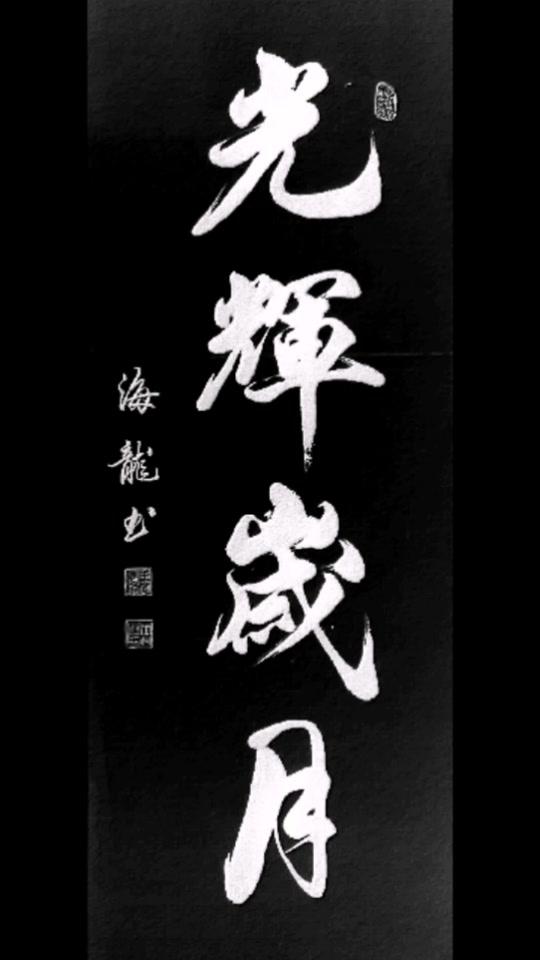 光輝歲月
海龍书